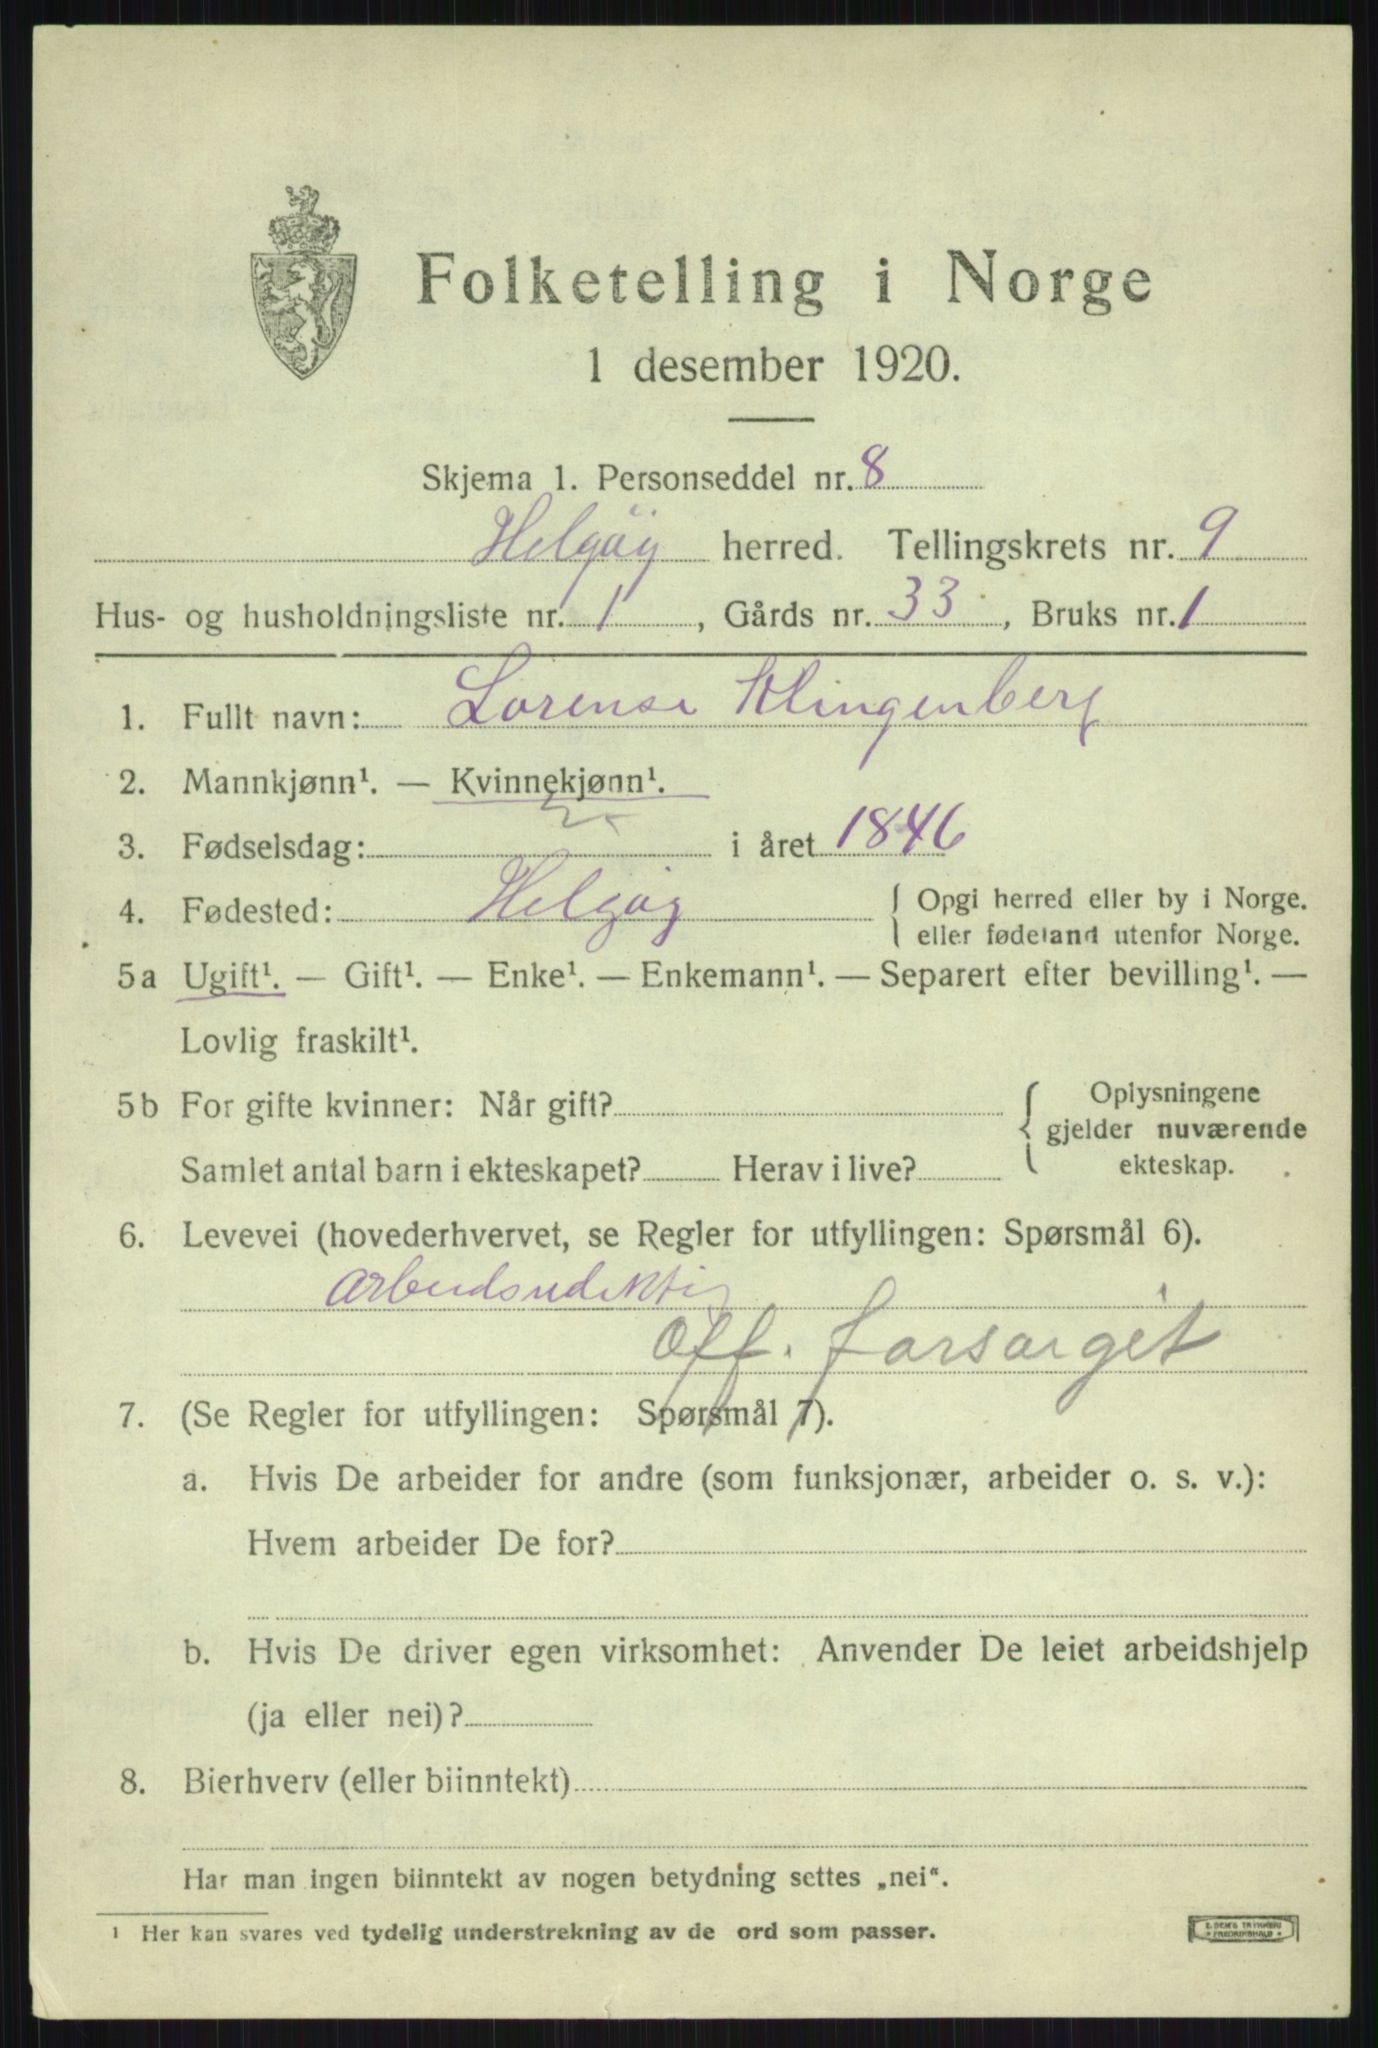 Folketelling i Norge
1 desember 1920.
Skjema 1. Personseddel nr. 8
Helgøy herred. Tellingskrets nr. 9
Hus- og husholdningsliste nr. 1, Gårds nr. 33, Bruks nr. 1
1. Fullt navn: Lorense Klingenberg
2. Mannkjønn¹. — Kvinnekjønn¹.
3. Fødselsdag: i året 1846
4. Fødested: Helgøy { Opgi herred eller by i Norge.
eller fødeland utenfor Norge.
5a Ugift¹. — Gift¹. — Enke¹. — Enkemann¹. — Separert efter bevilling¹. —
Lovlig fraskilt¹.
5b For gifte kvinner: Når gift? { Oplysningene
gjelder nuværende
Samlet antal barn i ekteskapet? Herav i live? ekteskap.
6. Levevei (hovederhvervet, se Regler for utfyllingen: Spørsmål 6).
Arbeidsudyktig
Off. forsørget
7. (Se Regler for utfyllingen: Spørsmål 7).
a. Hvis De arbeider for andre (som funksjonær, arbeider o. s. v.):
Hvem arbeider De for?
b. Hvis De driver egen virksomhet: Anvender De leiet arbeidshjelp
(ja eller nei)?
8. Bierhverv (eller biinntekt)
Har man ingen biinntekt av nogen betydning settes „nei“.
¹ Her kan svares ved tydelig understrekning av de ord som passer.
E. SEM'S TRYKKERI
FREDRIKSHALD